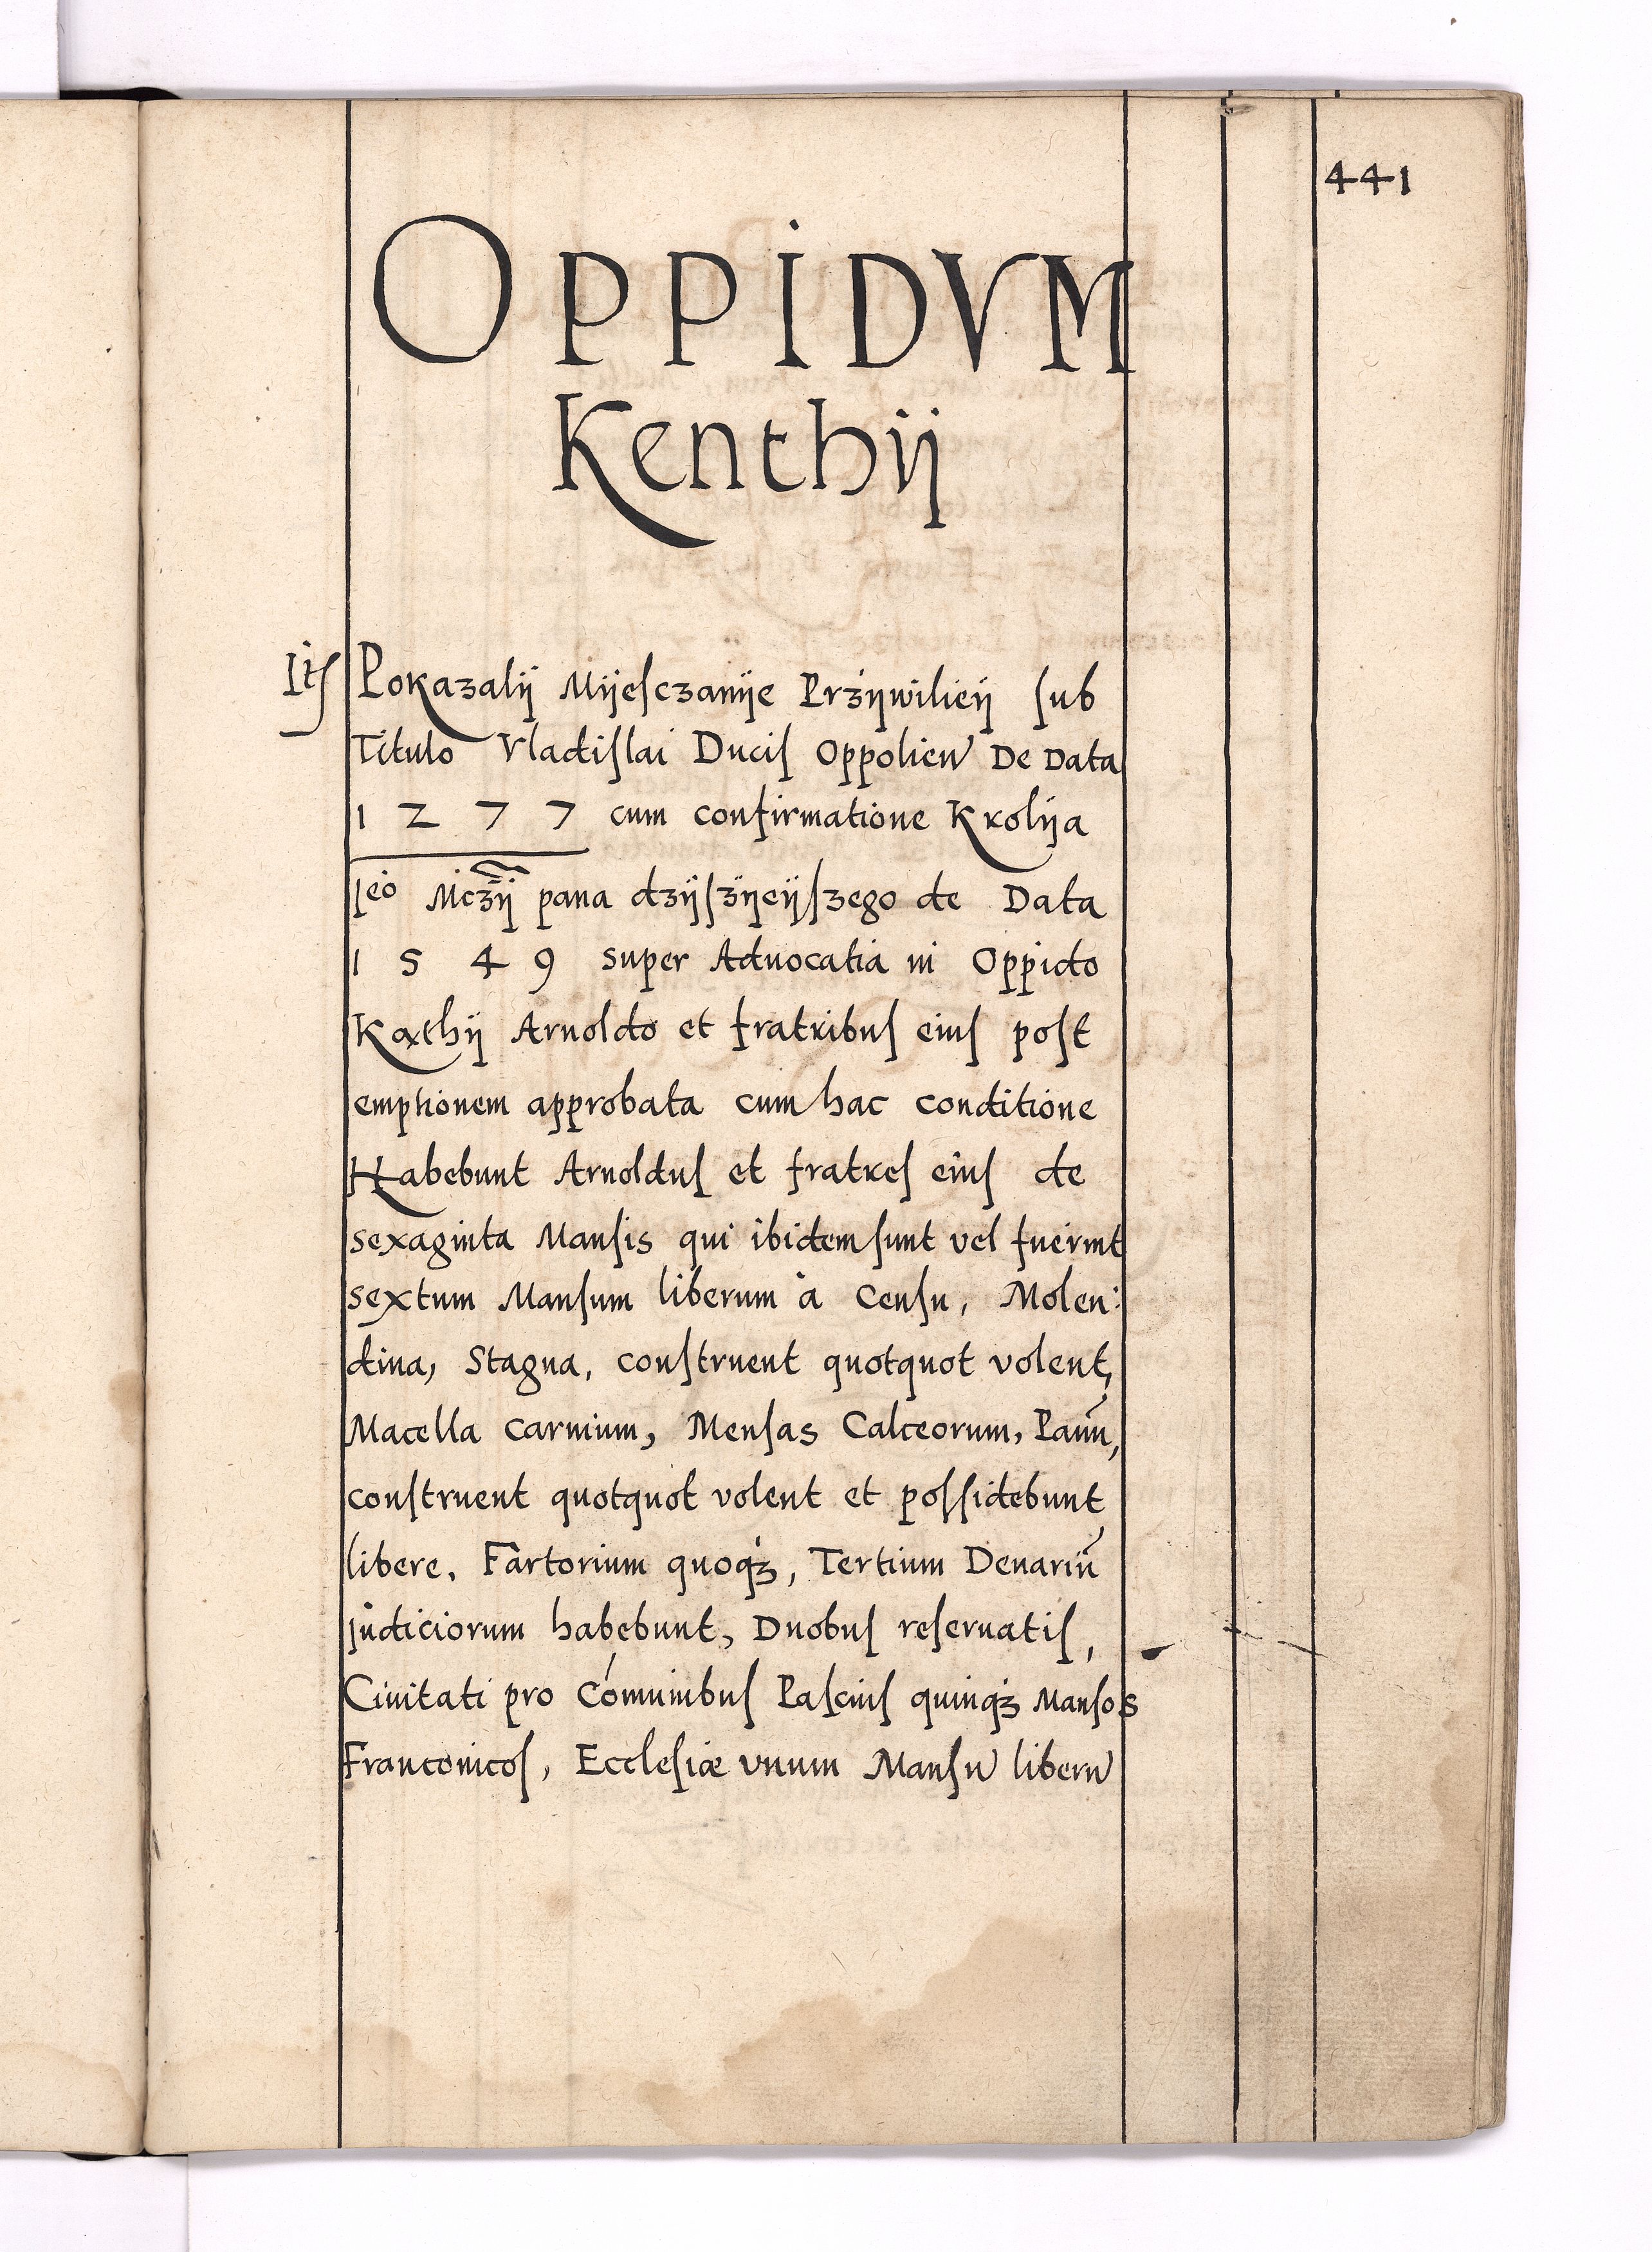 441
OPPIDVM
Kenthÿ
Itſ Pokazalÿ Mÿeſczanÿe Przÿwilieÿ ſub
Titulo Vladiſlai Duciſ Oppolien De Data
1 2 7 7 cum confirmatione Krolÿa
Jeo Mczÿ pana dzÿſzÿeÿſzego de Data
1 5 4 9 super Aduocatia in Oppido
Kathÿ Arnoldo et fratribuſ eiuſ poſt
emptionem approbata cum hac conditione
Habebunt Arnolduſ et fratreſ eiuſ de
sexaginta Manſis qui ibidem ſunt vel fuerint
sextum Manſum liberum à Cenſu, Molen:
dina, Stagna, conſtruent quotquot volent,
Macella carnium, Menſas Calceorum, Panũ,
conſtruent quotquot volent et poſſidebunt
libere. Fartorium quoqꝫ, Tertium Denariũ
judiciorum habebunt, Duobuſ reſeruatiſ,
Ciuitati pro Cómunibuſ Paſcuiſ quinqꝫ Manſos
Franconicoſ, Eccleſiæ vnum Manſũ liberũ